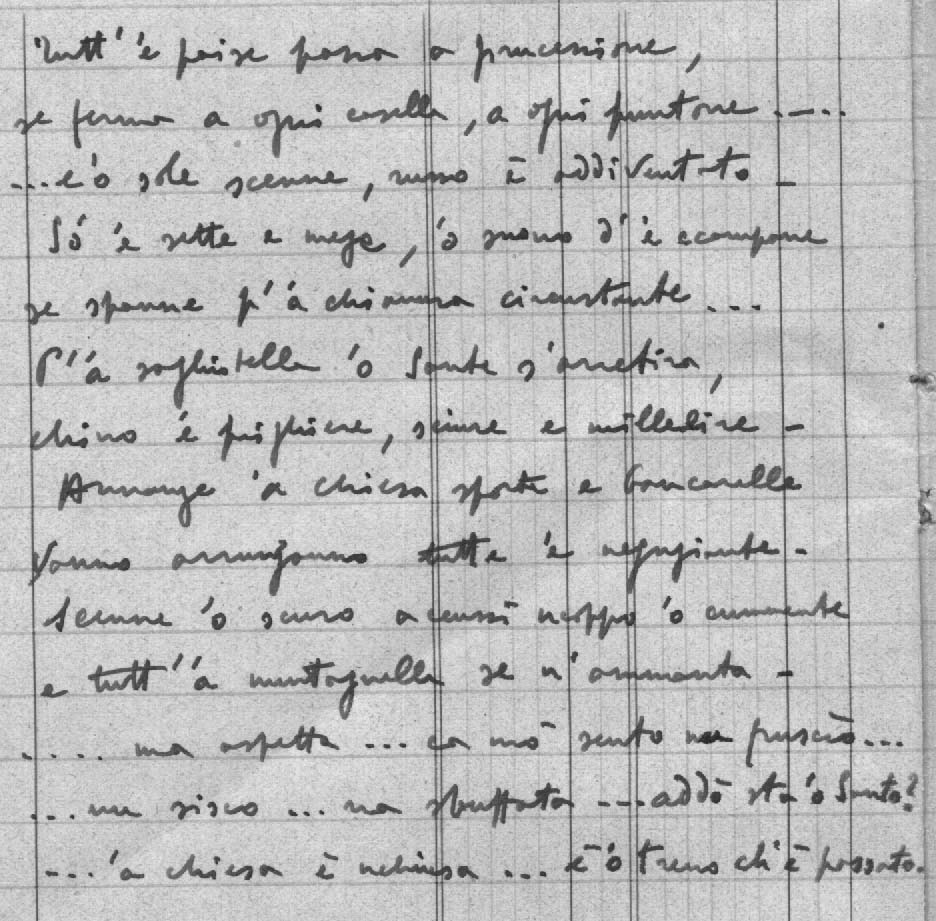 Tutt' 'e paise passa a prucessione,
se ferma a ogni casella, a ogni puntone ....
...e 'o sole scenne, russo è addiventato -
Só 'e sette e meze, 'o suono d' 'e ccampane
se spanne p' 'a chianura circustante...
P' 'a sagliutella 'o Sante s'arretira,
chino 'e pigliere, sciure e milledire -
Annanze 'a chiesa sporte e bancarelle
Vanno arrunganno tutte 'e neguziante -
Scenne 'o scuro accussì ncoppo 'o cummente
e tutt' 'a muntagnella se n'ammanta -
.... ma aspetta ... ca mò sento nu fruscìo...
...nu sisco ... na sbuffata ... addò sta 'o Santo?
... 'a chiesa è nchiusa ... è 'o treno ch'è passato.